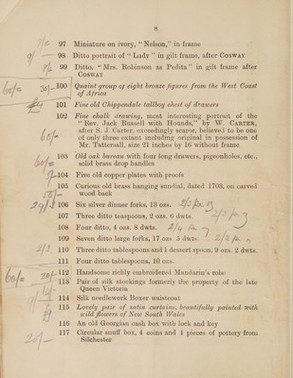 8
97 Miniature on ivory, "Nelson," in frame
98 Ditto portrait of "Lady" in gilt frame, after COSWAY
99 Ditto, "Mrs. Robinson as Pedita" in gilt frame after
COSWAY
100 Quaint group of eight bronze figures from the West Coast
of Africa
101 Fine old Chippendale tallboy chest of drawers
102 Fine chalk drawing, most interesting portrait of the
"Rev. Jack Russell with Hounds," by W. CARTER,
after S. J. Carter, exceedingly scarce, believed to be one
of only three extant including original in possession of
Mr. Tattersall, size 21 inches by 16 without frame
103 Old oak bureau with four long drawers, pigeonholes, etc.,
solid brass drop handles
104 Five old copper plates with proofs
105 Curious old brass hanging sundial, dated 1703, on carved
wood back
106 Six silver dinner forks, 13 ozs.
107 Three ditto teaspoons, 2 ozs. 6 dwts.
108 Four ditto, 4 ozs. 8 dwts.
109 Seven ditto large forks, 17 ozs 5 dwts
110 Three ditto tablespoons and 1 dessert spoon, 9 ozs. 2 dwts.
111 Four ditto tablespoons, 10 ozs.
112 Handsome richly embroidered Mandarin's robe
113 Pair of silk stockings formerly the property of the late
Queen Victoria
114 Silk needlework Boxer waistcoat
115 Lovely pair of satin curtains, beautifully painted with
wild flowers of New South Wales
116 An old Georgian cash box with lock and key
117 Circular snuff box, 4 coins and 4 pieces of pottery from
Silchester